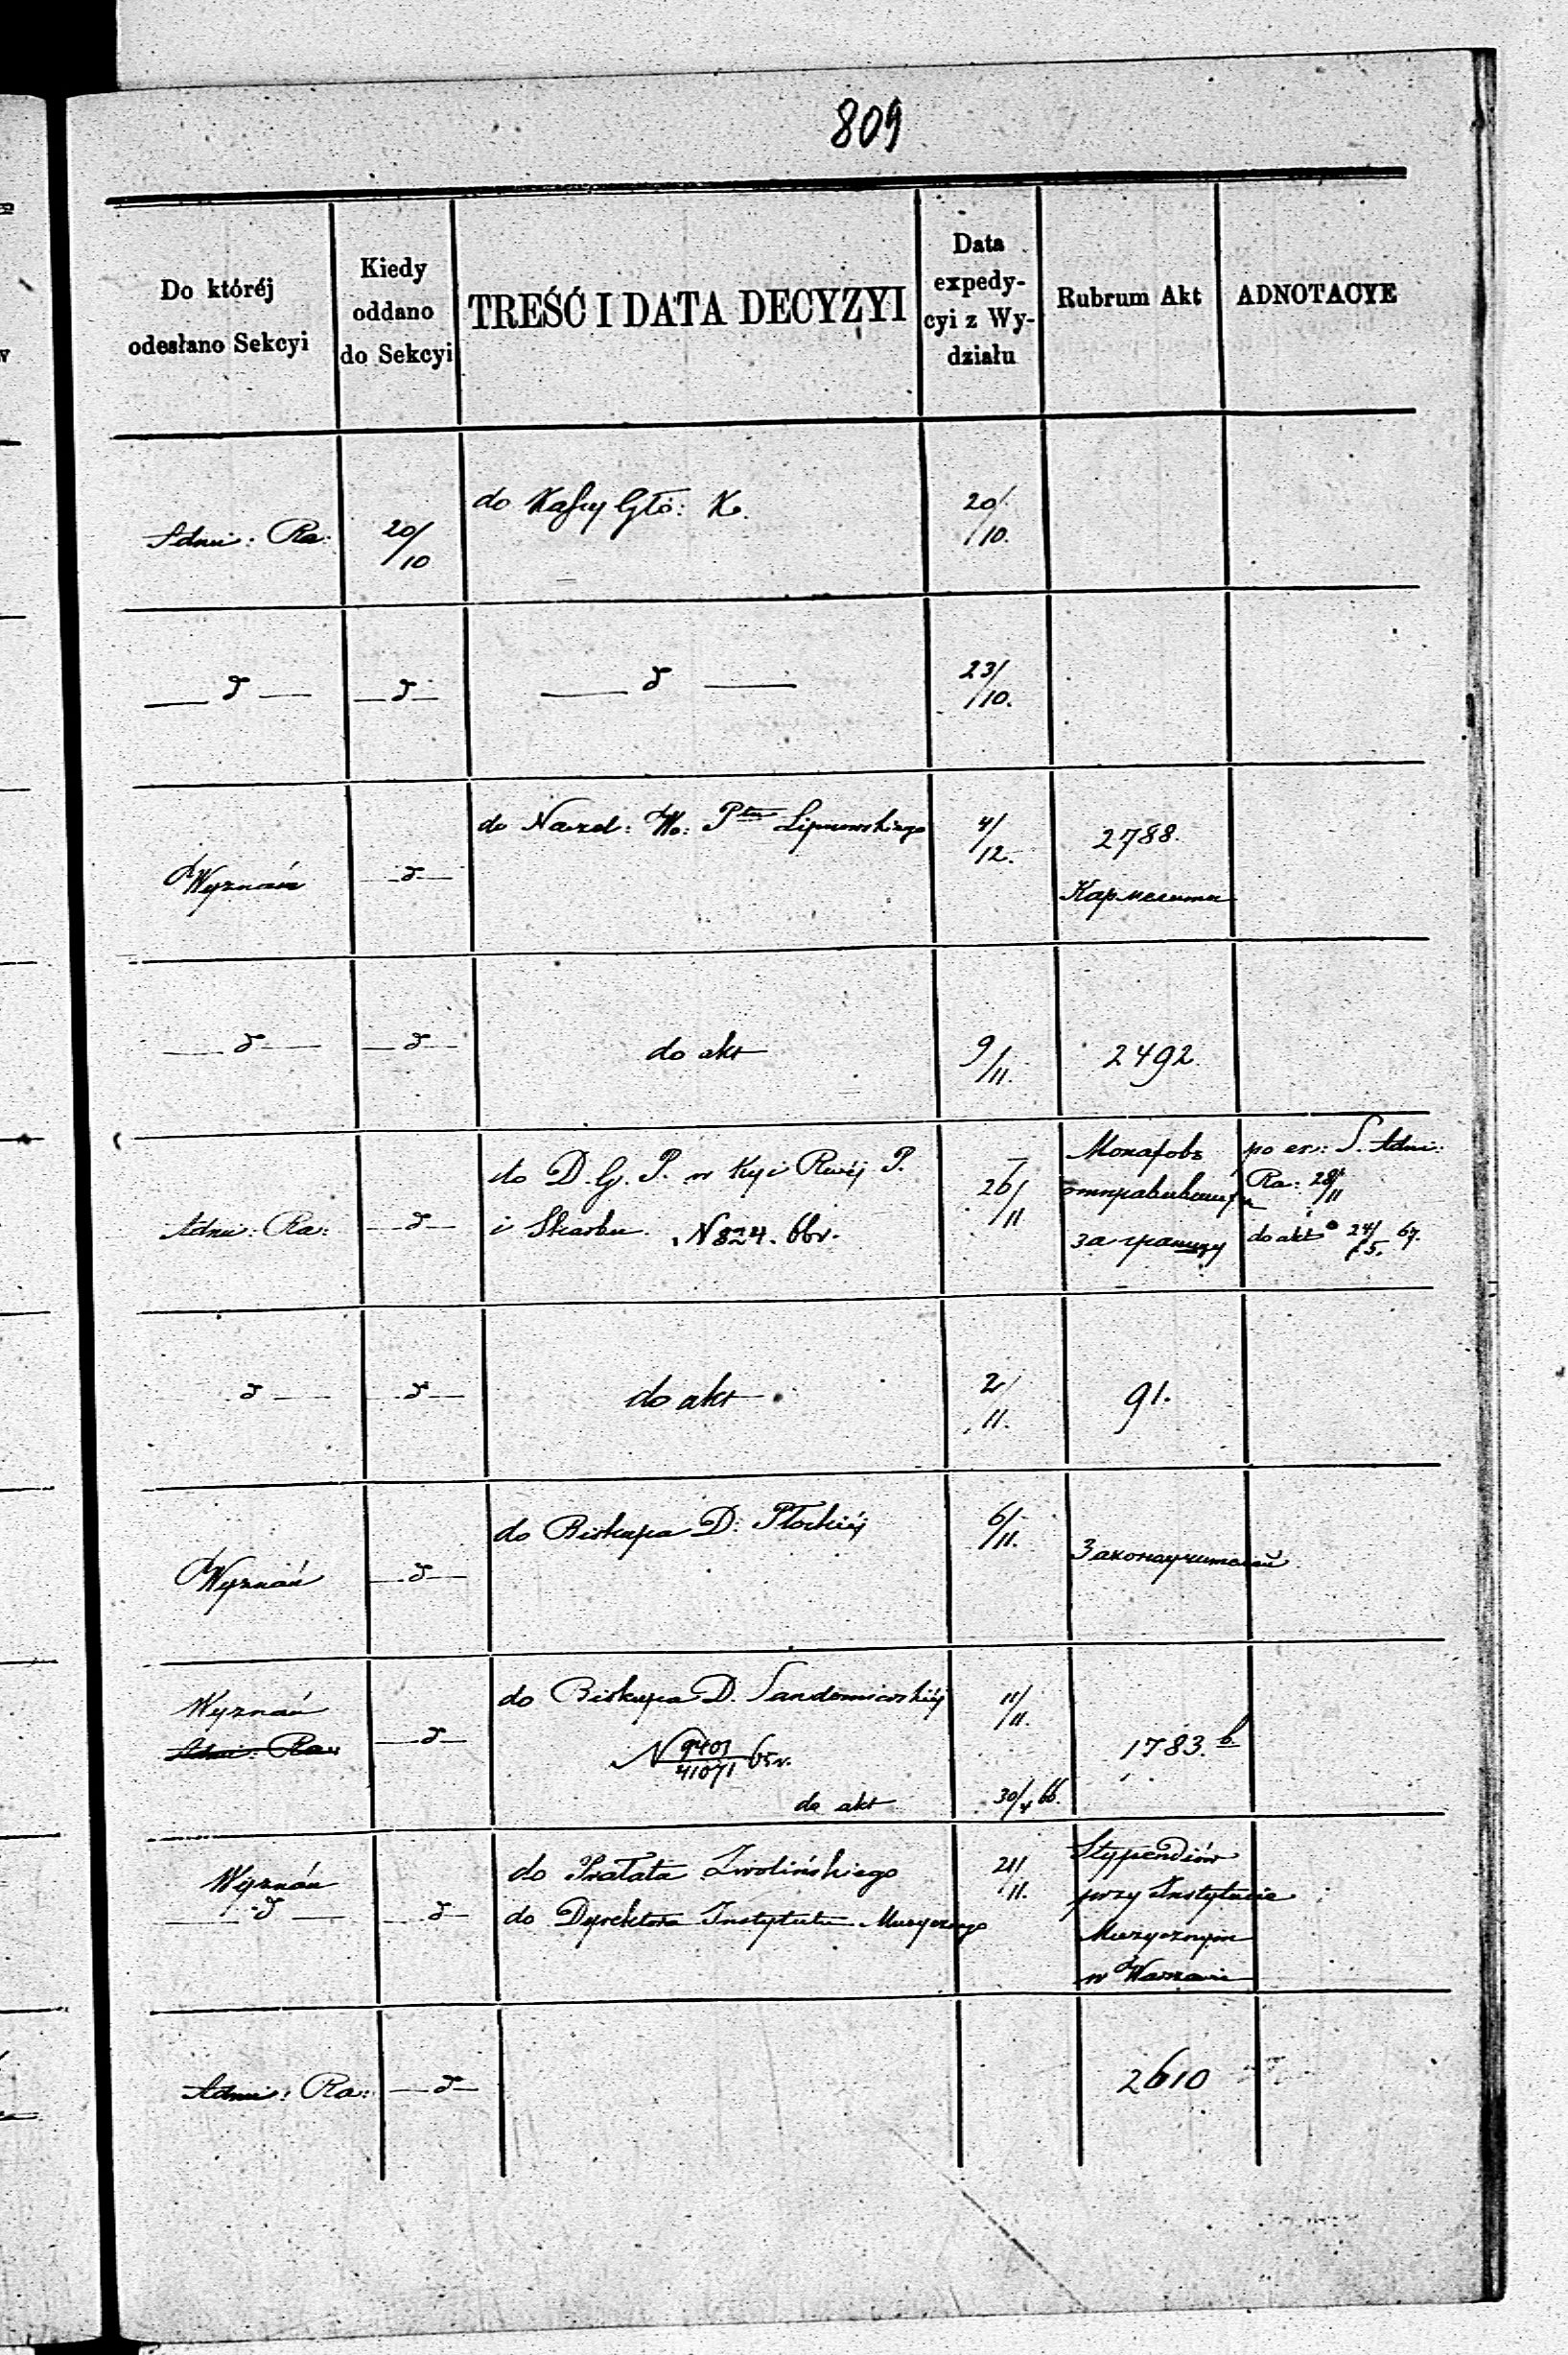 809
Do któréj
odesłano Sekcyi
Kiedy
oddano
do Sekcyi
TREŚĆ I DATA DECYZYI
Data
expedy-
cyi z Wy-
działu
Rubrum Akt
ADNOTACYE
Admi: Ra:
20/10
do Kassy Głó: K.
20/10.
— d —
— d —
— d —
23/10.
Wyznań
— d —
do Naczel: Wo: Ptu Lipnowskiego
4/12.
2788.
Кармелиты
— d —
— d —
do akt
9/11.
2492.
Admi: Ra:
— d —
do D. G. P. w Kyi Rwéj P.
i Skarbu. N 824. 66r.
26/11
Монаховъ
отправивших
за границу
po ex: S. Admi:
Ra: 28/11
do akt 24/5. 67.
d —
— d —
do akt
2/11.
91.
Wyznań
— d —
do Biskupa D: Płockiéj
6/11.
Законоучителей
Wyznań
Admi: Ra:
— d —
do Biskupa D. Sandomierskiéj
11/11.
N 9401/41071 65r.
1783. b.
do akt
30/4 66.
Wyznań
— d —
— d —
do Prałata Zwolińskiego
do Dyrektora Instytutu Muzycznego
21/11.
Stypendiów
przy Instytucie
Muzycznym
w Warszawie
Admi: Ra:
— d —
2610